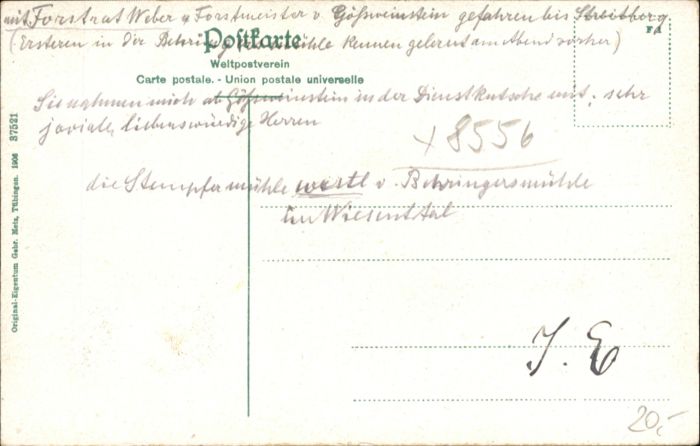 mit Forstrat Weber u Forstmeister v. Gößweinstein gefahren bis Streitberg
(Ersteren in der Behringersmühle kennen gelernt am Abend vorher)
Postkarte
F.A
Weltpostverein
Carte postale. - Union postale universelle
Sie nahmen mich ab Gößweinstein in der Dienstkutsche mit; sehr
joviale, liebenswürdige Herren
+8556
die Stempfermühle westl v. Behringersmühle
im Wiesenttal
J. E
20,-
Original-Eigentum Gebr. Metz, Tübingen. 1906 37521